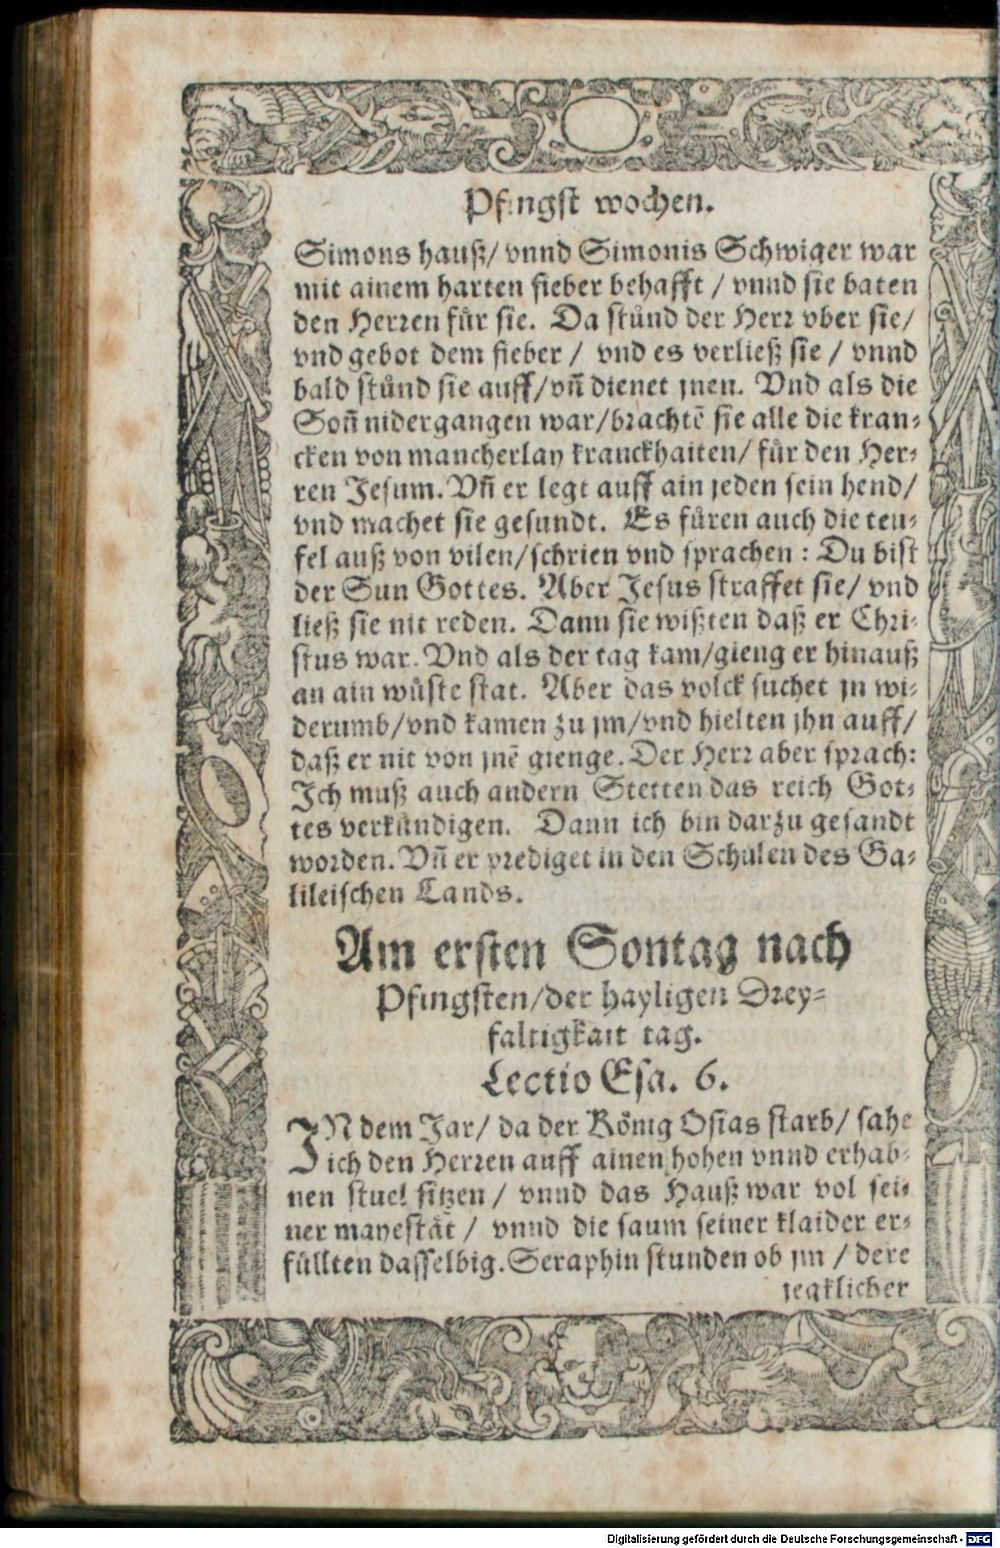 Pfingst wochen.
Simons hauß/ vnnd Simonis Schwiger war
mit ainem harten fieber behafft / vnnd sie baten
den Herren für sie. Da stůnd der Herr vber sie/
vnd gebot dem fieber / vnd es verließ sie / vnnd
bald stůnd sie auff/vñ dienet jnen. Vnd als die
Soñ nidergangen war/brachtẽ sie alle die kran⸗
cken von mancherlay kranckhaiten/ für den Her⸗
ren Jesum. Vñ er legt auff ain jeden sein hend/
vnd machet sie gesundt. Es fůren auch die teu⸗
fel auß von vilen/schrien vnd sprachen : Du bist
der Sun Gottes. Aber Jesus straffet sie/ vnd
ließ sie nit reden. Dann sie wißten daß er Chri⸗
stus war. Vnd als der tag kam/gieng er hinauß
an ain wůste stat. Aber das volck suchet jn wi⸗
derumb/vnd kamen zu jm/vnd hielten jhn auff/
daß er nit von jnẽ gienge. Der Herr aber sprach:
Ich muß auch andern Stetten das reich Got⸗
tes verkündigen. Dann ich bin darzu gesandt
worden. Vñ er prediget in den Schulen des Ga⸗
lileischen Lands.
Am ersten Sontag nach
Pfingsten/der hayligen Drey⸗
faltigkait tag.
Lectio Esa. 6.
IN dem Jar/ da der König Osias starb/ sahe
ich den Herren auff ainen hohen vnnd erhab⸗
nen stuel sitzen / vnnd das Hauß war vol sei⸗
ner mayestät / vnnd die saum seiner klaider er⸗
füllten dasselbig. Seraphin stunden ob jm / dere
jegklicher
Digitalisierung gefördert durch die Deutsche Forschungsgemeinschaft - DFG